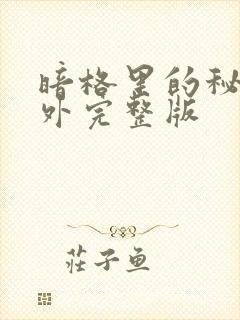 暗格里的秘
外完整版
莊子鱼